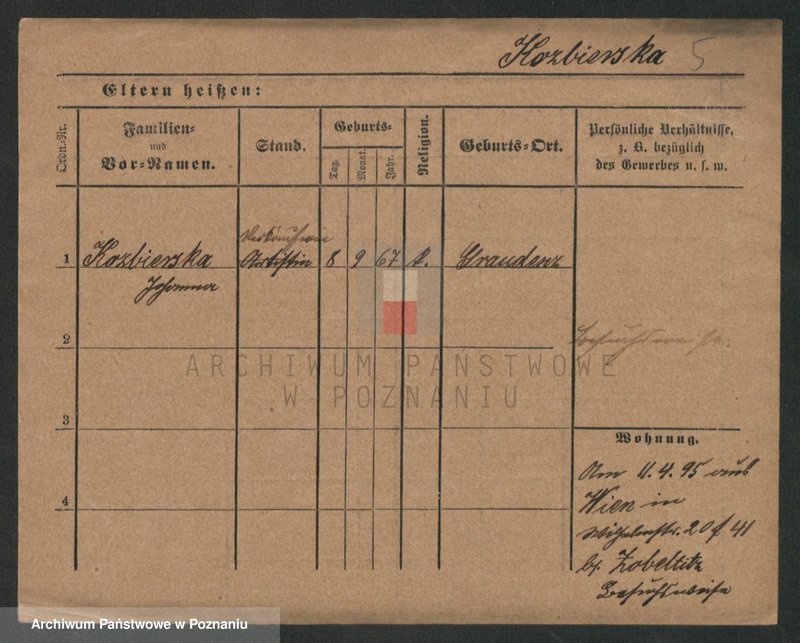 Kozbierska 5
Eltern heißen:
Ordn.-Nr.
Familien-
und
Vor-Namen.
Stand.
Geburts-
Tag.
Monat.
Jahr.
Religion.
Geburts-Ort.
Persönliche Verhältnisse,
z. B. bezüglich
des Gewerbes u. s. w.
Verkäuferin
1 Kozbierska Artistin 8 9 67 k. Graudenz
Johanna
2
Besuchsweise
ARCHIWUM PAŃSTWOWE
W POZNANIU
3
Wohnung.
Am 11.4.95 aus
4
Wien in
Wilhelmstr. 20 / 41
b/ Zobeltitz
Besuchsweise
Archiwum Państwowe w Poznaniu